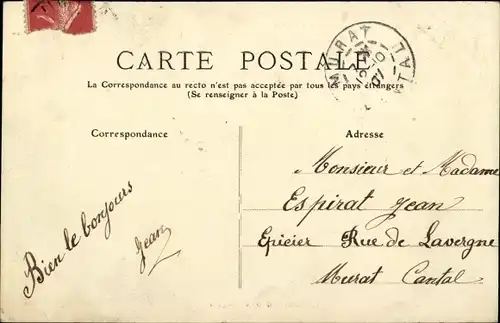 CARTE POSTALE
MURAT
CANTAL
La Correspondance au recto n'est pas acceptée par tous les pays étrangers
(Se renseigner à la Poste)
Correspondance
Adresse
Bien le bonjours
Jean
Monsieur et Madame
Espirat Jean
Epicier Rue de Lavergne
Murat Cantal